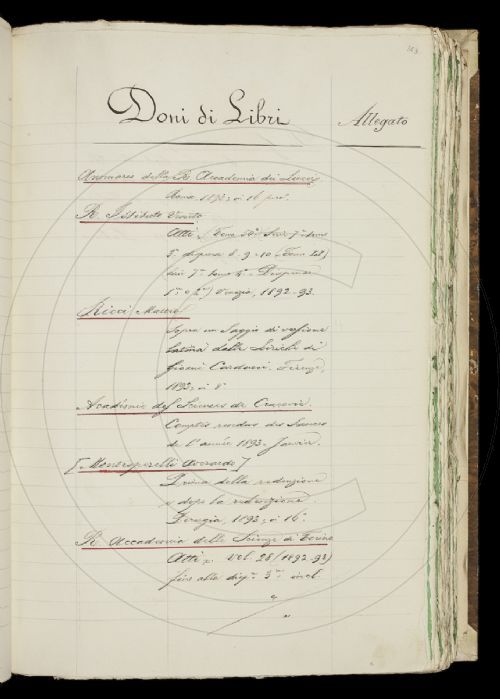 Doni di Libri
Allegato
Annuario della R. Accademia dei Lincei
Roma 1893; in 16 picc.
R. Istituto Veneto
Atti (Tomo Serie 7ª tomo
5. dispensa 8. 9. 10 (Tomo
serie 7ª tomo 4º Dispensa
1ª e 2ª) Venezia, 1892-93.
Ricci, Mauro
Sopra un Saggio di versione
latina delle Liriche di
Giosuè Carducci. Firenze,
1893; in 8º
Académie des Sciences de Cracovie.
Comptes rendus des Séances
de l'année 1893. Janvier.
[Monteperelli Averardo]
Prima della redenzione
e dopo la redenzione.
Perugia, 1893; in 16º
R. Accademia delle Scienze di Torino
Atti Vol. 28 (1892-93)
fino alla disp. 5ª incl.